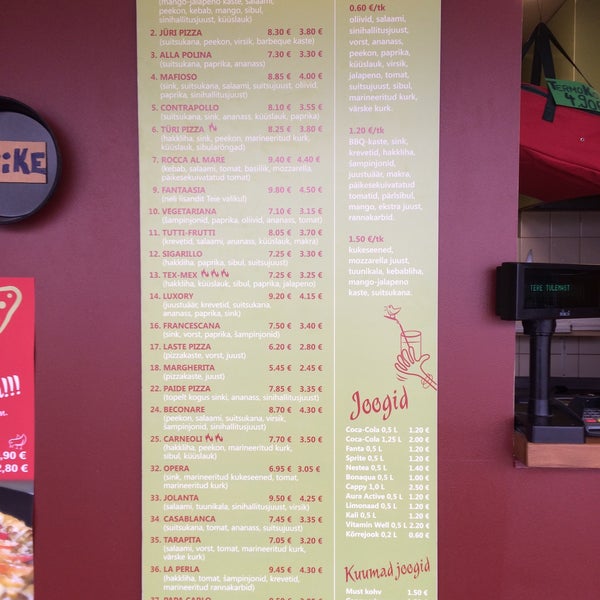 (mango-jalapeno kaste, salaami,
peekon, kebab, mango, sibul,
sinihallitusjuust, küüslauk)
2. JÜRI PIZZA 8.30 € 3.80 €
(suitsukana, peekon, virsik, barbeque kaste)
3. ALLA POLINA 7.30 € 3.30 €
(suitsukana, paprika, ananass)
4. MAFIOSO 8.85 € 4.00 €
(sink, suitsukana, salaami, suitsujuust, oliivid,
paprika, sinihallitusjuust)
5. CONTRAPOLLO 8.10 € 3.55 €
(suitsukana, sink, ananass, küüslauk, paprika)
6. TÜRI PIZZA 8.25 € 3.80 €
(hakkliha, sink, peekon, marineeritud
kurk, sibularõngad)
7. ROCCA AL MARE 9.40 € 4.40 €
(kebab, salaami, tomat, basiilik, mozzarella,
päikesekuivatatud tomat)
9. FANTAASIA 9.80 € 4.50 €
(neli lisandit Teie valikul)
10. VEGETARIANA 7.10 € 3.15 €
(šampinjonid, paprika, oliivid, ananass, tomat)
11. TUTTI-FRUTTI 8.05 € 3.70 €
(krevetid, salaami, ananass, küüslauk, makra)
12. SIGARILLO 7.25 € 3.30 €
(hakkliha, paprika, sibul, suitsujuust)
13. TEX-MEX 7.25 € 3.25 €
(hakkliha, küüslauk, sibul, paprika, jalapeno)
14. LUXORY 9.20 € 4.15 €
(juustuäär, krevetid, suitsukana,
ananass, paprika, sink)
16. FRANCESCANA 7.50 € 3.40 €
(sink, vorst, paprika, šampinjonid)
17. LASTE PIZZA 6.20 € 2.80 €
(pizzakaste, vorst, juust)
18. MARGHERITA 5.45 € 2.45 €
(pizzakaste, juust)
22. PAIDE PIZZA 7.85 € 3.35 €
(topelt kogus sinki, ananass, sinihallitusjuust)
24. BECONARE 8.70 € 4.30 €
(peekon, salaami, suitsukana, virsik,
šampinjonid, sink)
25. CARNEOLI 7.70 € 3.50 €
(hakkliha, peekon, marineeritud kurk,
sibul, küüslauk)
32. OPERA 6.95 € 3.05 €
(sink, marineeritud kukeseened, tomat,
marineeritud kurk)
33. JOLANTA 9.50 € 4.25 €
(salaami, tuunikala, sinihallitusjuust, virsik)
34 CASABLANCA 7.45 € 3.35 €
(suitsukana, tomat, ananass, suitsujuust)
35. TARAPITA 7.05 € 3.20 €
(salaami, vorst, tomat, marineeritud kurk,
värske kurk)
36. LA PERLA 9.45 € 4.30 €
(hakkliha, tomat, šampinjonid, krevetid,
marineeritud rannakarbid)
37. PAPA CARLO
0.60 €/tk
oliivid, salaami,
sinihallitusjuust,
vorst, ananass,
peekon, paprika,
küüslauk, virsik,
jalapeno, tomat,
suitsujuust, sink,
hakkliha, sibul,
marineeritud kurk,
värske kurk.
1.20 €/tk
BBQ-kaste, sink,
krevetid, hakkliha,
šampinjonid,
juustuäär, makra,
päikesekuivatatud
tomatid, pärlsibul,
mango, ekstra juust,
rannakarbid.
1.50 €/tk
kukeseened,
mozzarella juust,
tuunikala, kebabliha,
mango-jalapeno
kaste, suitsukana.
Joogid
Coca-Cola 0,5 L 1.20 €
Coca-Cola 1,25 L 2.00 €
Fanta 0,5 L 1.20 €
Sprite 0,5 L 1.20 €
Nestea 0,5 L 1.40 €
Bonaqua 0,5 L 1.20 €
Cappy 1,0 L 2.50 €
Aura Active 0,5 L 1.20 €
Limonaad 0,5 L 1.20 €
Kali 0,5 L 1.20 €
Vitamin Well 0,5 L 2.20 €
Kõrrejook 0,2 L 0.60 €
Kuumad joogid
Must kohv 1.50 €
TERE TULEMAST
iKE
!!!
,90 €
2,80 €